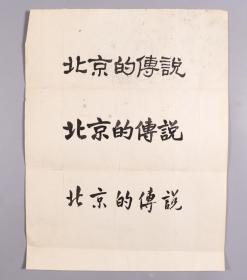 北京的傳說
北京的傳說
北京的傳說